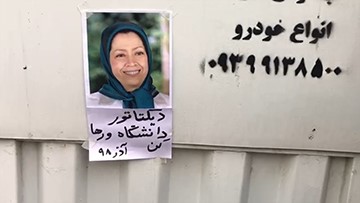 انواع
خودرو
۰۹۳۹۹۱۳۸۵۰۰
دیکتاتور
دانشگاه ورها
کن
آذر ۹۸